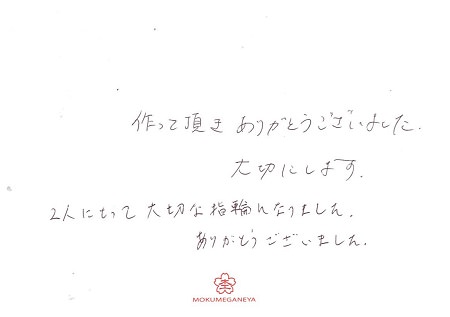 作って頂き ありがとうございました.
大切にします.
2人にとって 大切な指輪になりました.
ありがとうございました.
MOKUMEGANEYA